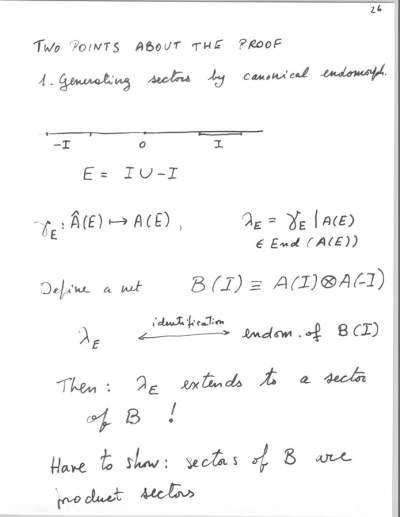 26
TWO POINTS ABOUT THE PROOF
1. Generating sectors by canonical endomorph.
-I 0 I
E = I ∪ -I
γ_E : Â(E) ↦ A(E), λ_E = γ_E | A(E)
∈ End (A(E))
Define a net B(I) ≡ A(I)⊗A(-I)
identification
λ_E ⟷ endom. of B(I)
Then: λ_E extends to a sector
of B !
Have to show: sectors of B are
product sectors